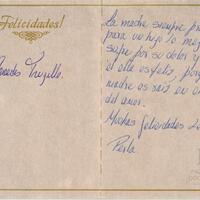 ¡Felicidades!
Trujillo.
La madre siempre
para un hijo lo
sufre por su dolor y
el ella es feliz, por
madre es raiz en
del amor.
Muchas felicidades
Perla